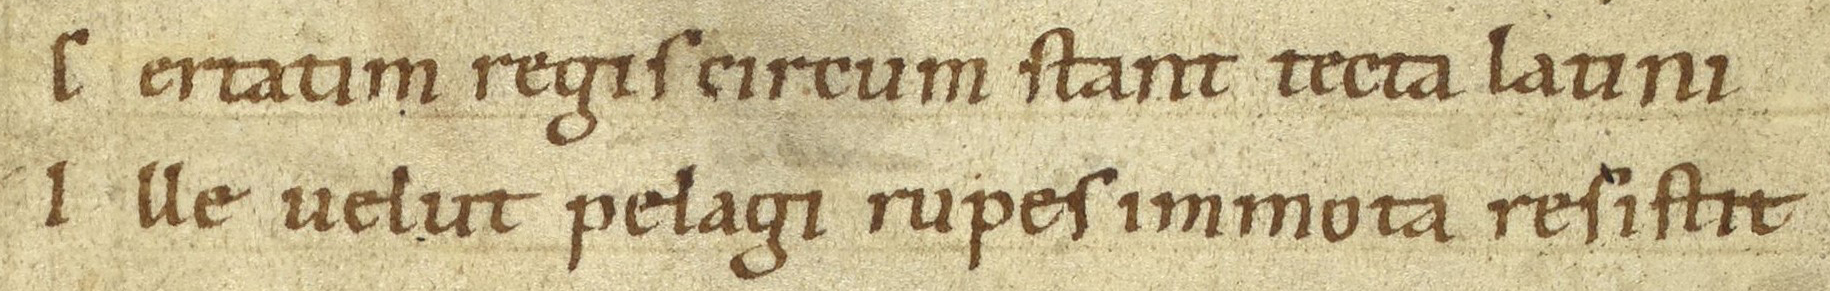 S ertatim regis circum stant tecta latini
I lle uelut pelagi rupes immota resistit